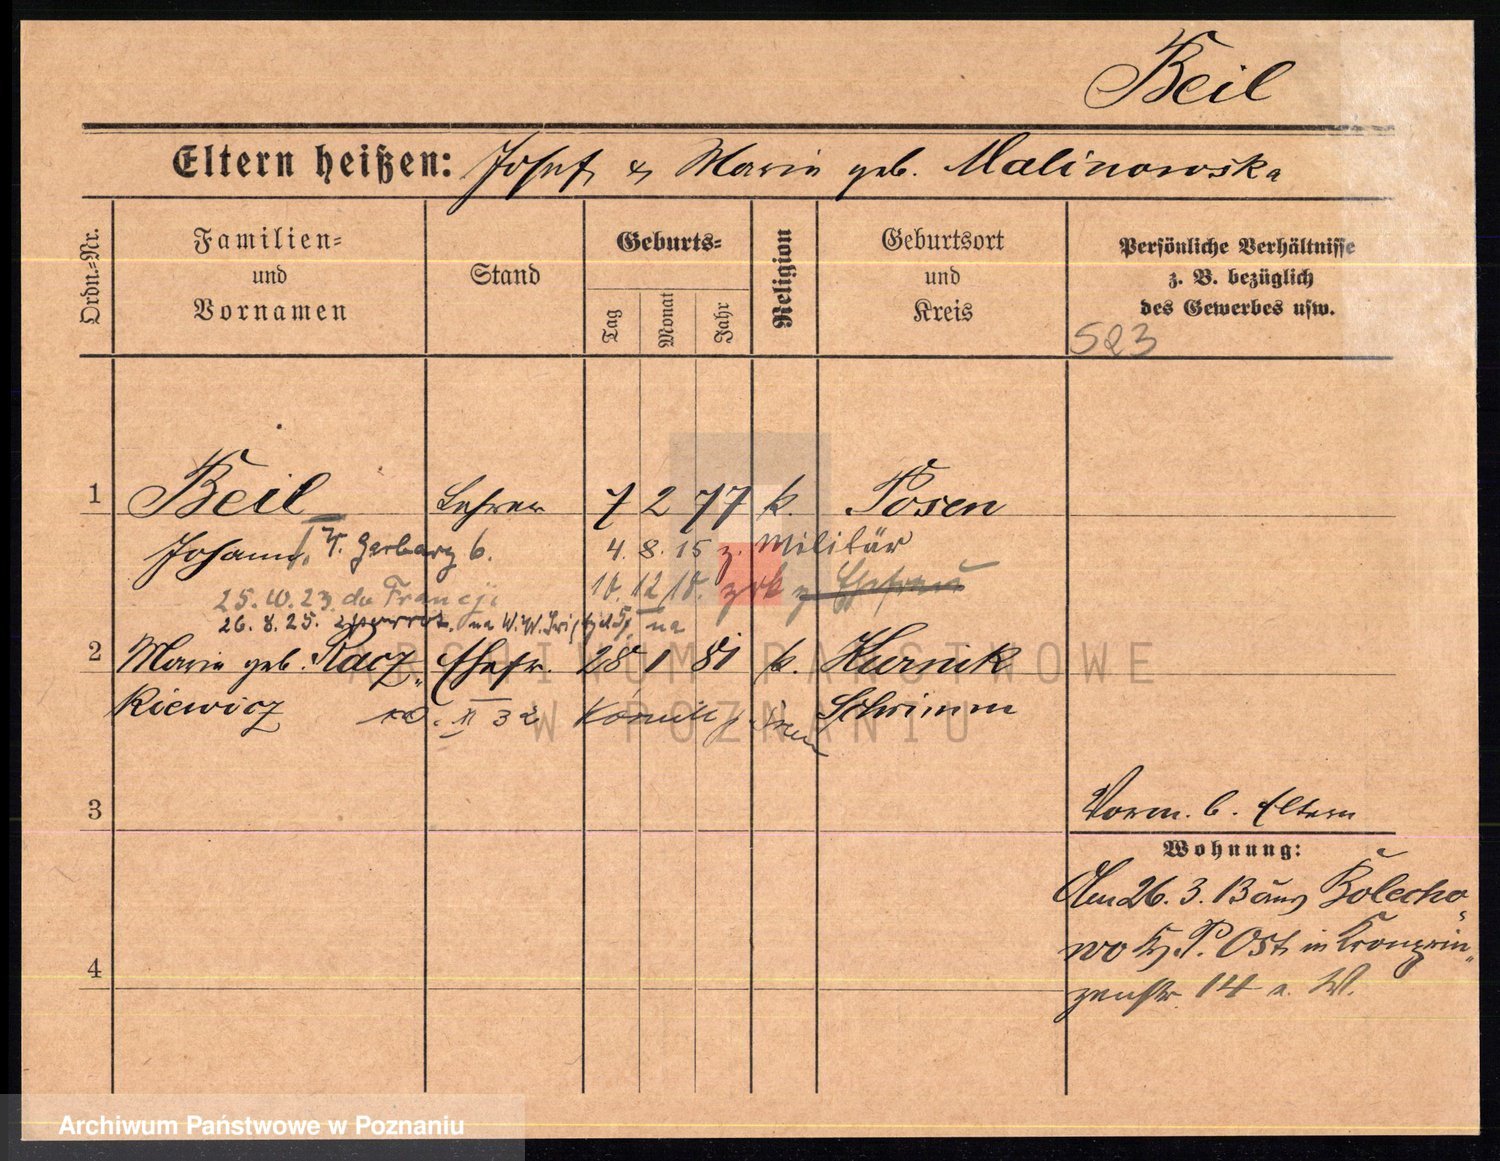 Beil
Eltern heißen: Josef & Marie geb. Malinowska
Ordn.-Nr.
Familien-
und
Vornamen
Stand
Geburts-
Tag
Monat
Jahr
Religion
Geburtsort
und
Kreis
Persönliche Verhältnisse
z. B. bezüglich
des Gewerbes usw.
523
1 Beil Lehrer 7 2 77 k. Posen
Johann, Gerbary 6. 4. 8. 15 z. Militär
25. 10. 23. do Francji 18. 12 18. zrk z Ehefrau
26. 8. 25. na
2 Marie geb. Racz„ Ehefr. 28 1 81 k. Kurnik
kiewicz 32 Kórnik p Śrem Schrimm
3
Vorm. b. Eltern
Wohnung:
Am 26. 3. 13 aus Kolecho„
wo P. Ost in Kronprin„
zenstr. 14 a. W.
4
ARCHIWUM PAŃSTWOWE
W POZNANIU
Archiwum Państwowe w Poznaniu